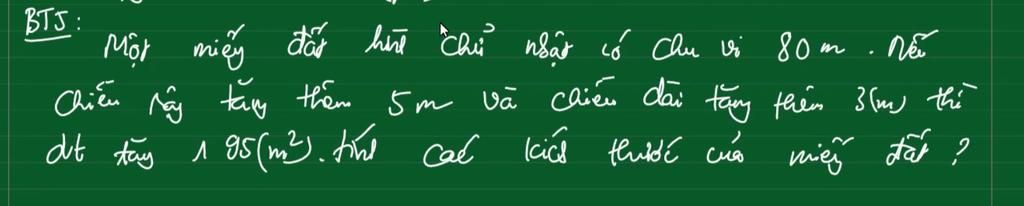 BT5:
Một miếng đất hình chữ nhật có chu vi 80m. Nếu
chiều rộng tăng thêm 5m và chiều dài tăng thêm 3(m) thì
dt tăng 195(m²). tính các kích thước của miếng đất?